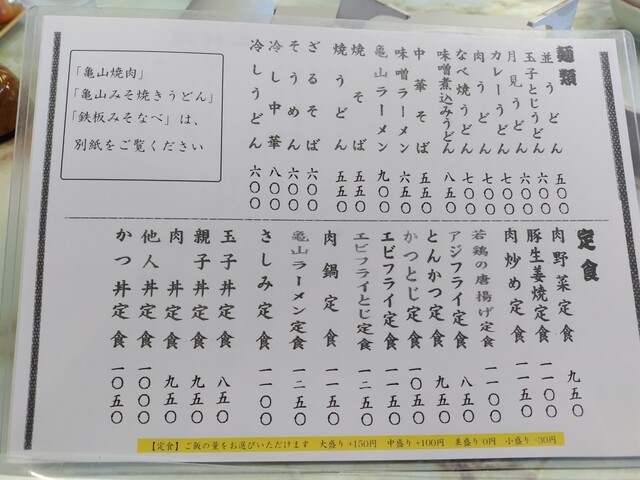 麺類
並うどん 五〇〇
玉子とじうどん 六〇〇
月見うどん 六〇〇
カレーうどん 七〇〇
肉うどん 七〇〇
なべ焼うどん 七〇〇
味噌煮込みうどん 八五〇
中華そば 五五〇
味噌ラーメン 六五〇
亀山ラーメン 九〇〇
焼そば 五五〇
焼うどん 五五〇
ざるそば 六〇〇
そうめん 六〇〇
冷し中華 八〇〇
冷しうどん 六〇〇
「亀山焼肉」
「亀山みそ焼きうどん」
「鉄板みそなべ」は、
別紙をご覧ください
定食
肉野菜定食 九五〇
豚生姜焼定食 一一〇〇
肉炒め定食 一一五〇
若鶏の唐揚げ定食 一一〇〇
アジフライ定食 八五〇
とんかつ定食 九五〇
かつとじ定食 一〇五〇
エビフライ定食 一一五〇
エビフライとじ定食 一二五〇
肉鍋定食 一一五〇
亀山ラーメン定食 一二五〇
さしみ定食 一一〇〇
玉子丼定食 八五〇
親子丼定食 九五〇
肉丼定食 九五〇
他人丼定食 一〇〇〇
かつ丼定食 一〇五〇
【定食】ご飯の量をお選びいただけます 大盛り+150円 中盛り+100円 並盛り0円 小盛り-30円